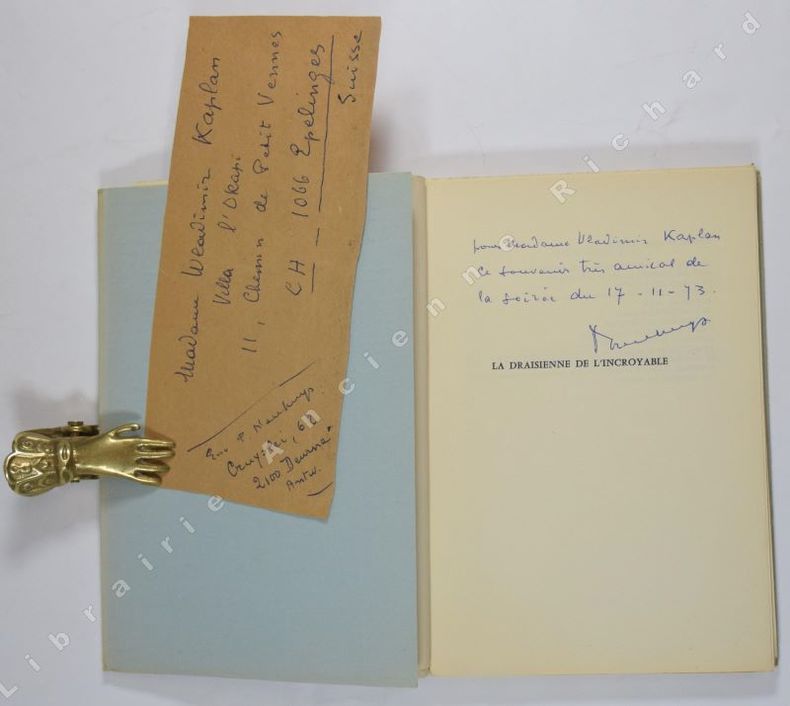 Madame Wladimir Kaplan
Villa l'Okapi
11, Chemin de Petit Vennes
CH - 1066 Epelinges
Suisse
Env. P. Neuhuys
Cruyslei, 68
2100 Deurne-
Antw.
pour Madame Wladimir Kaplan
ce souvenir très amical de
la soirée du 17-11-73.
LA DRAISIENNE DE L'INCROYABLE
Librairie Ancienne Richard